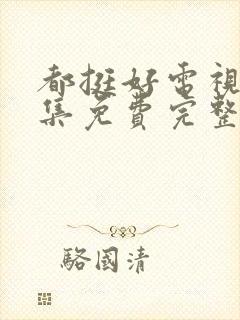 都挺好電視
集免費完整
駱國清